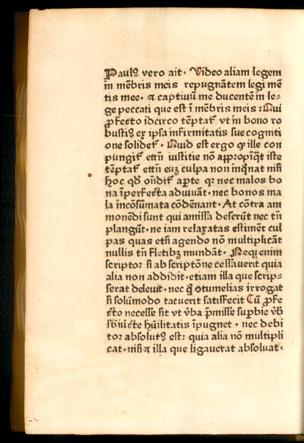 Paulꝰ vero ait · Video aliam legem
in mēbris meis repugnātem legi mē
tis mee · ⁊ captiuū me ducentē in le-
ge peccati que est ī mēbris meis : Qui
ꝓfecto idcirco tēptat᷑ vt in bono ro
bustiꝰ ex ipsa infirmitatis sue cogniti
one solidet᷑ · Quid est ergo ꝙ ille con
pungit᷑ ettī iustitie nō appropīq̄t iste
tēptat᷑ ettī euꝫ culpa non inq̄nat nisi
hoc qd̄ ondit᷑ apte ꝙ nec malos bo
na īperfecta adiuuāt · nec bonos ma
la incōsūmata cōdēnant · At cōtra am
monēdi sunt qui amissa deserūt nec tn̄
plangūt · ne iam relaxatas estimēt cul
pas quas etsi agendo nō multiplicāt
nullis tn̄ fletibꝫ mundāt · Neqꝫ enim
scriptor si ab scriptōne cessauerit quia
alia non addidit · etiam illa que scrip-
serat deleuit · nec ꝙ contumelias irrogat
si solūmodo tacuerit satisfecit Cū ꝓfe
cto necesse sit vt vba p̄misse supbie vb̄
humilitatis īpugnet · nec debi
tor absolutꝰ est : quia alia nō multipli
cat · nisi ⁊ illa que ligauerat absoluat ·